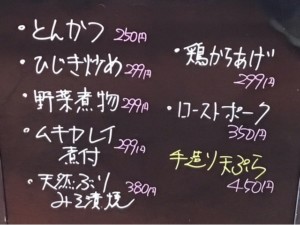 ・とんかつ 250円
・ひじき炒め 299円
・野菜煮物 299円
・ムキカレイ
煮付 299円
・天然ぶり
みそ漬焼 380円
・鶏からあげ
299円
・ローストポーク
350円
手造り天ぷら
450円